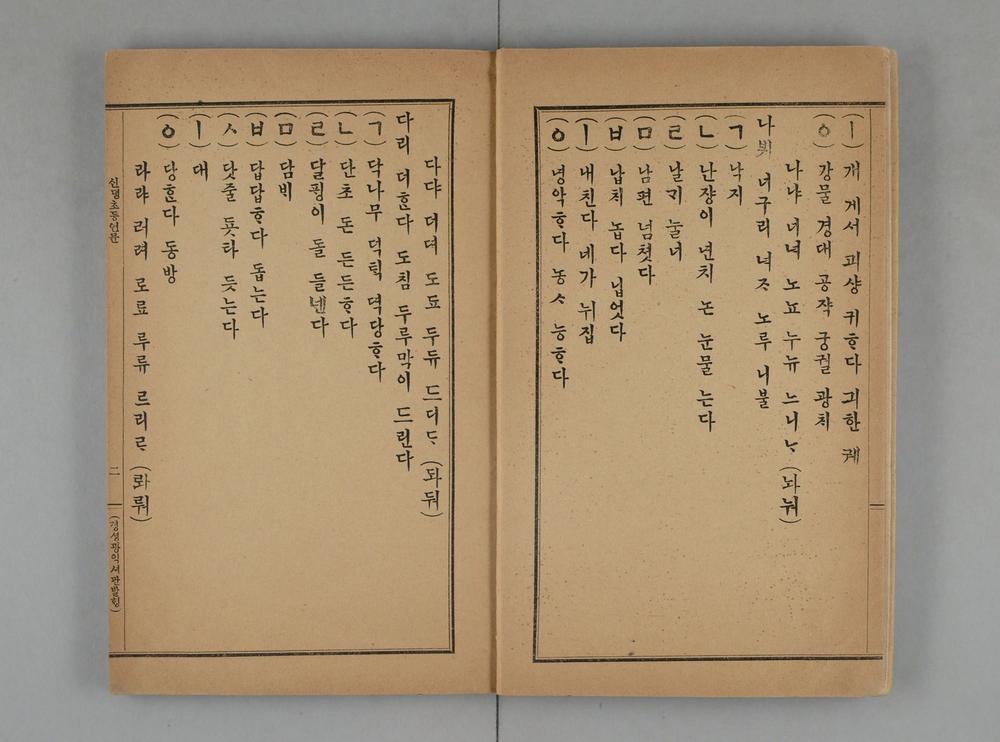 (ㅣ) 개 게서 괴샹 귀ᄒᆞ다 긔한 궤
(ㆁ) 강물 경대 공쟉 궁궐 광치
나냐 너녀 노뇨 누뉴 느니ᄂᆞ (놔눠)
나뷔 너구리 녀ᄌᆞ 노루 니불
(ㄱ) 낙지
(ㄴ) 난쟝이 년치 논 눈물 는다
(ㄹ) 날기 눌너
(ㅁ) 남편 넘쳣다
(ㅂ) 납치 놉다 닙엇다
(ㅣ) 내친다 네가 뉘집
(ㆁ) 녕악ᄒᆞ다 농ᄉᆞ 능ᄒᆞ다
다댜 더뎌 도됴 두듀 드디ᄃᆞ (돠둬)
다리 더ᄒᆞᆫ다 도침 두루막이 드린다
(ㄱ) 닥나무 덕 덕당ᄒᆞ다
(ㄴ) 단초 돈 든든ᄒᆞ다
(ㄹ) 달핑이 돌 들넨다
(ㅁ) 담ᄇᆡ
(ㅂ) 답답ᄒᆞ다 돕는다
(ㅅ) 닷줄 돗타 듯는다
(ㅣ) 대
(ㆁ) 당ᄒᆞᆫ다 동방
라랴 러려 로료 루류 르리ᄅᆞ (롸뤄)
신뎡초등언문
二
(경셩광익셔관발ᄒᆡᆼ)